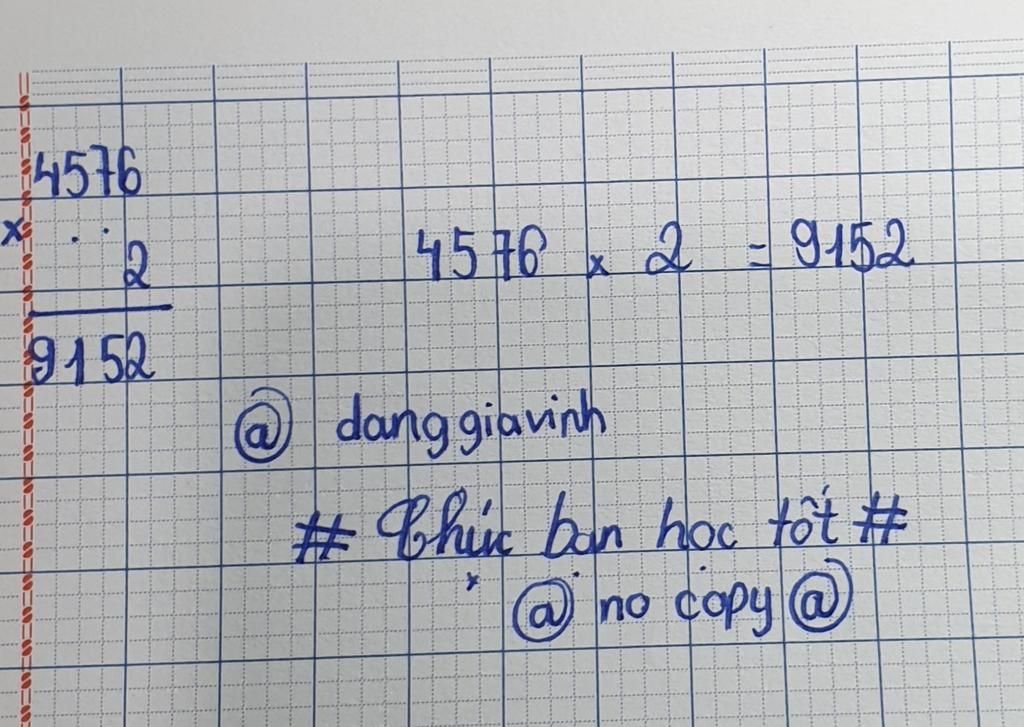 4576
x . .
2
9152
4576 x 2 = 9152
@ danggiavinh
# Chúc bạn học tốt #
@ no copy @